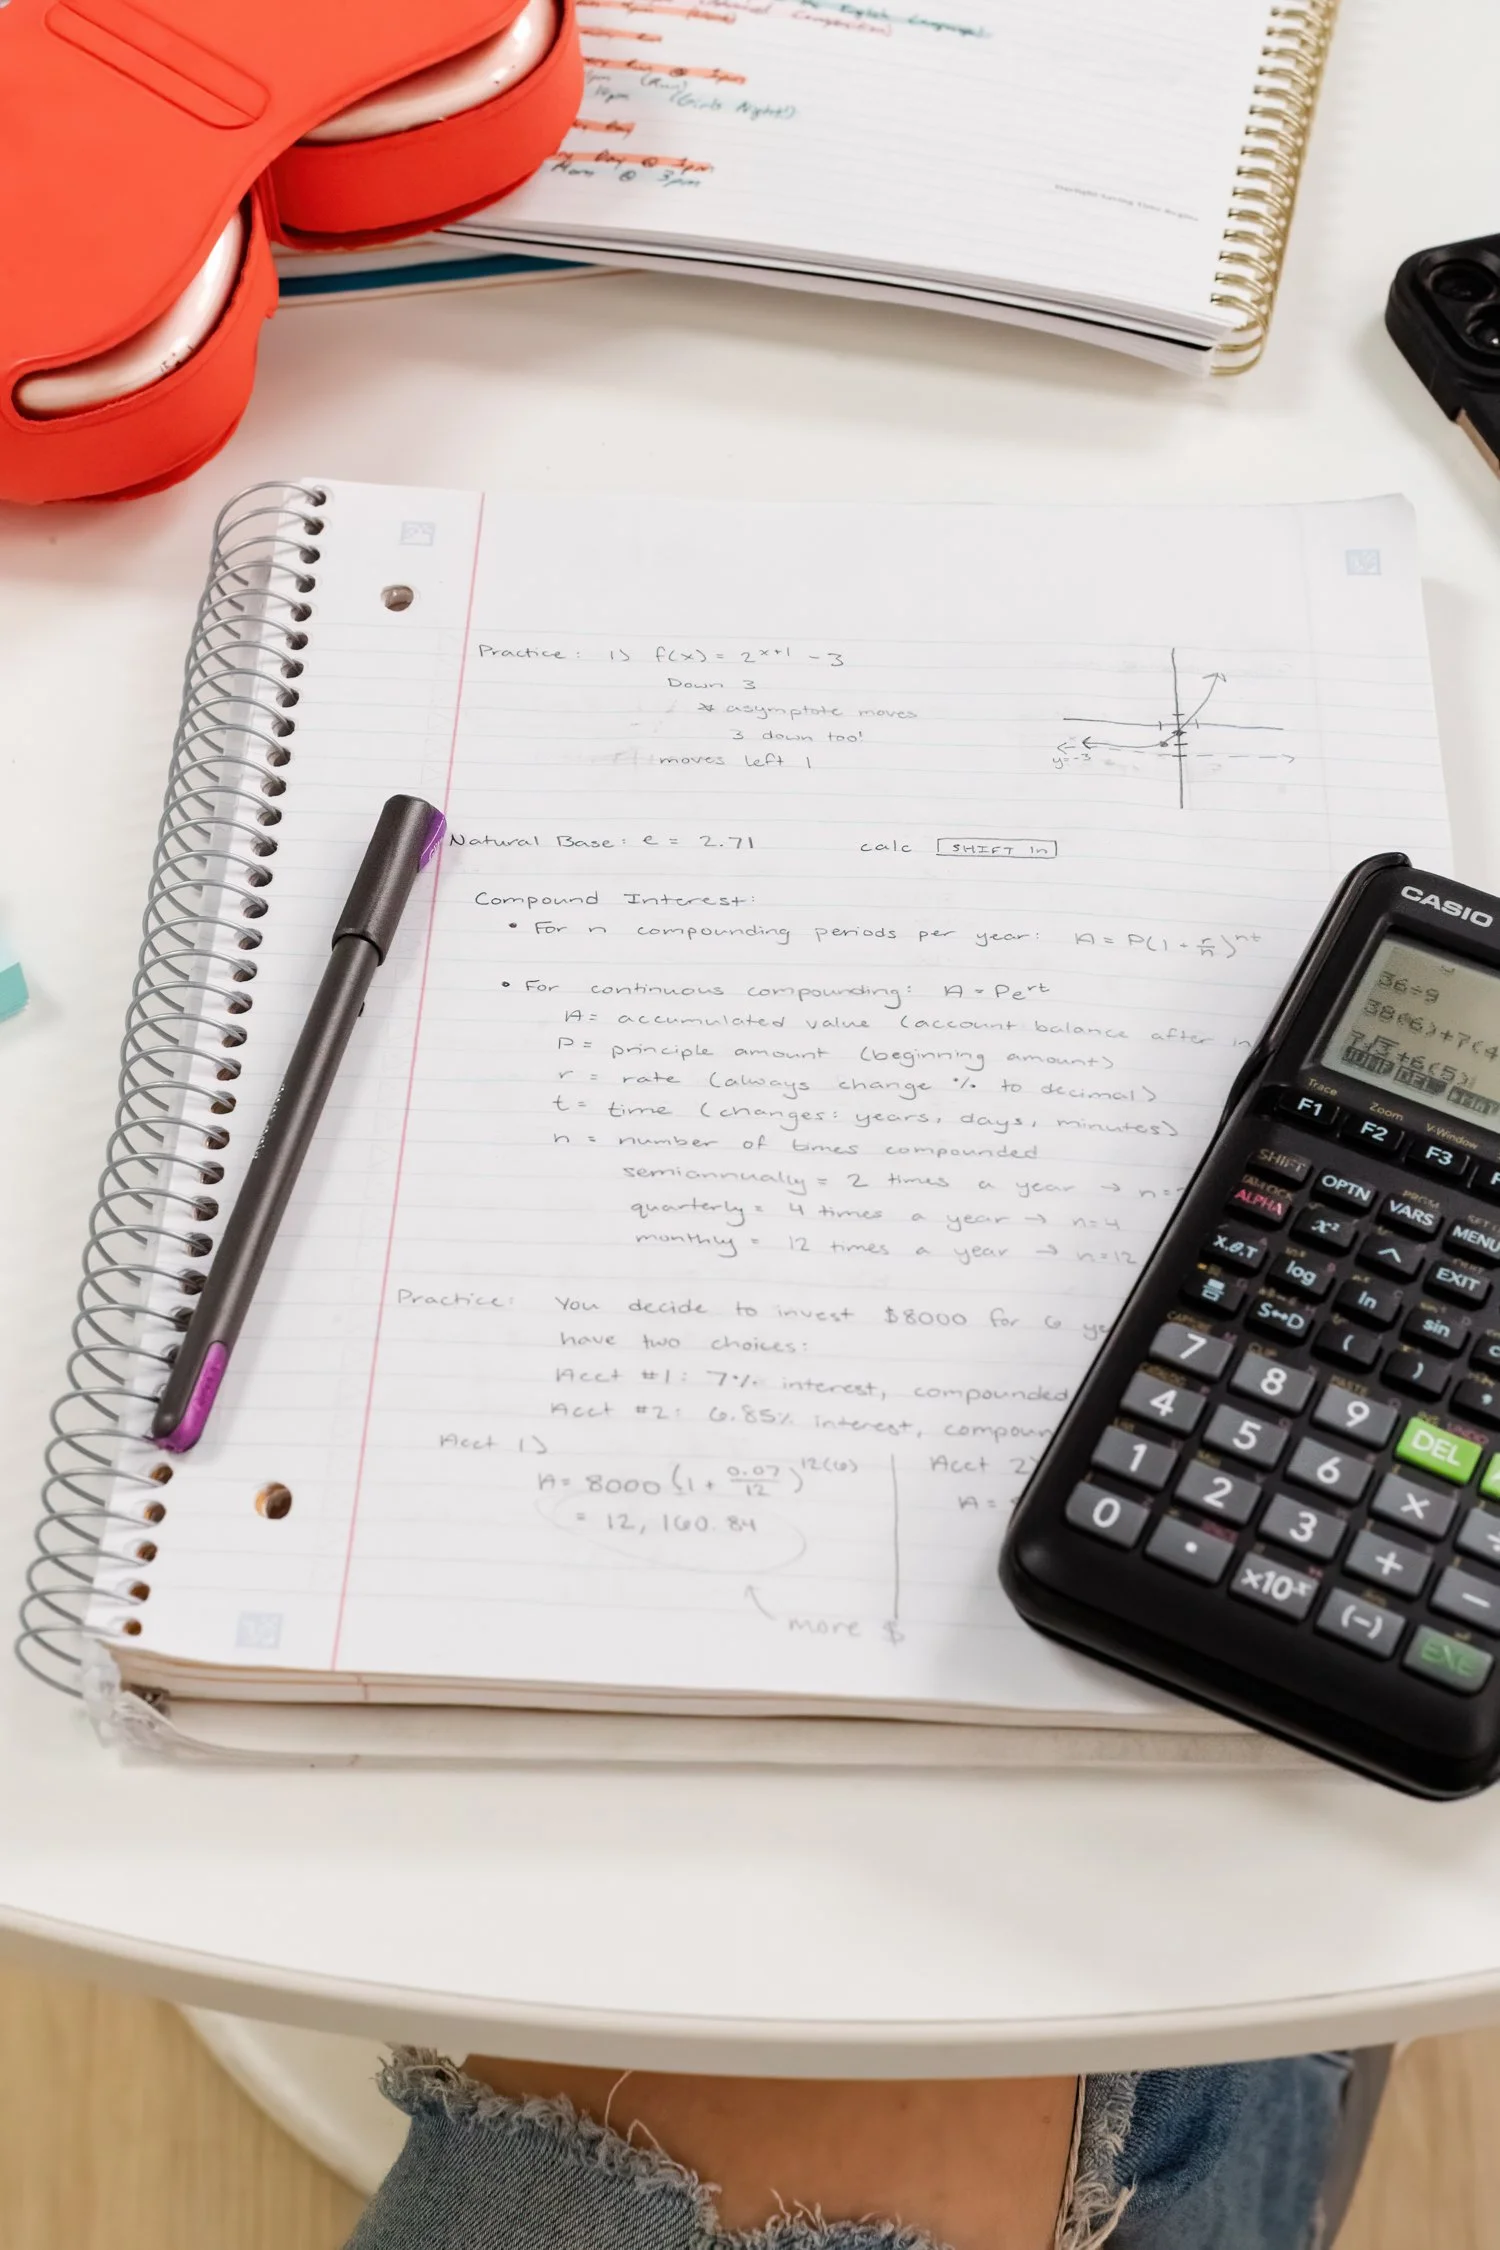 (Girls Night!)
Mom @ 3pm
Practice: 1) f(x) = 2^x+1 - 3
Down 3
* asymptote moves
3 down too!
moves left 1
y=-3
Natural Base: e = 2.71 calc SHIFT ln
Compound Interest:
• For n compounding periods per year: A = P(1 + r/n)^nt
• For continuous compounding: A = Pe^rt
A = accumulated value (account balance after
P = principle amount (beginning amount)
r = rate (always change % to decimal)
t = time (changes: years, days, minutes)
n = number of times compounded
semiannually = 2 times a year → n=
quarterly = 4 times a year → n=4
monthly = 12 times a year → n=12
Practice: You decide to invest $8000 for 6
have two choices:
Acct #1: 7% interest, compounded
Acct #2: 6.85% interest,
Acct 1)
A = 8000 (1 + 0.07/12)^12(6)
= 12,160.84
more $
Acct 2)
A =
CASIO
36÷9
38(6)+7(4
7√3+6(5)
JUMP DEL
Trace Zoom V-Window
F1 F2 F3
SHIFT OPTN VARS MENU
ALPHA x² ^ EXIT
X,θ,T log ln sin
S↔D ( ) ,
7 8 9 DEL
4 5 6 ×
1 2 3 + −
0 . ×10ˣ (−) EXE